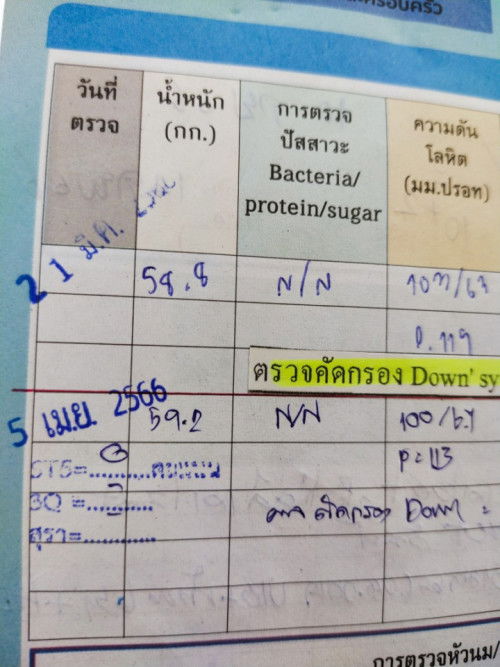 วันที่ตรวจ
น้ำหนัก (กก.)
การตรวจปัสสาวะ Bacteria/protein/sugar
ความดันโลหิต (มม.ปรอท)
21 มี.ค. 2566
58.8
N/N
107/63
P. 119
ตรวจคัดกรอง Down' sy
5 เม.ย. 2566
59.2
N/N
100/67
P = 113
ST5=
2Q =
สุรา=
คัดกรอง Down =
การตรวจหัวนม/